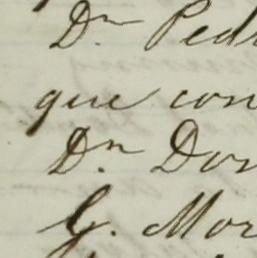 Dn Ped
que con
Dn Don
G. Mor